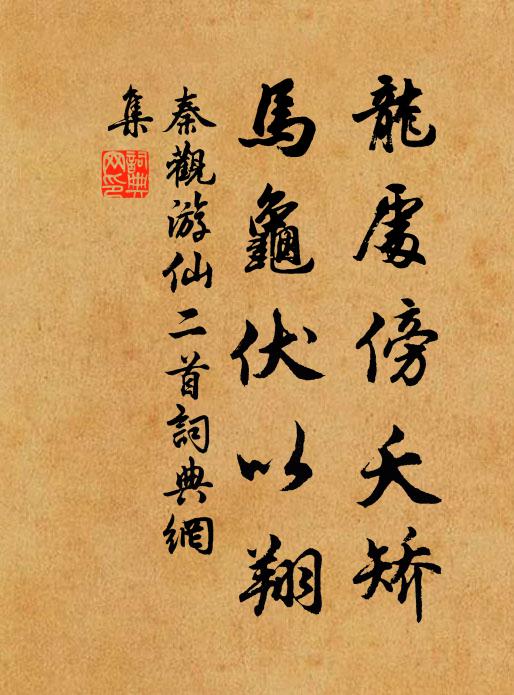 龍處傍夭矯
馬龜伏以翔
秦觀游仙二首詞典網
集
詞典
网印